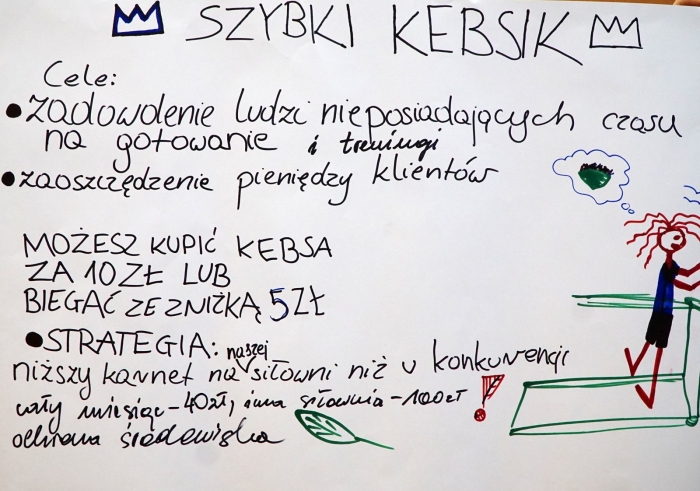 SZYBKI KEBSIK
Cele:
• zadowolenie ludzi nieposiadających czasu
na gotowanie i treningi
• zaoszczędzenie pieniędzy klientów
MOŻESZ KUPIĆ KEBSA
ZA 10ZŁ LUB
BIEGAĆ ZE ZNIŻKĄ 5ZŁ
• STRATEGIA: naszej
niższy karnet na siłowni niż u konkurencji
cały miesiąc - 40zł, inna siłownia - 100zł !
ochrona środowiska